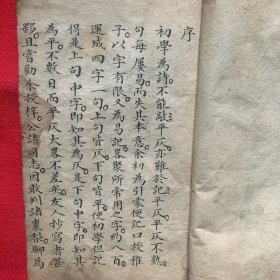 序
初學為詩不能敲平仄亦難於記平仄不熟
句每屢易而失其本意余初為引蒙便記口授稚
子以字有限又為易記畧聚所常用之字約八百
運成四字一句上句皆仄下句皆平使初學但記
得是上句中字即知其為仄是下句中字即知其
為平不數日而平仄大畧不差矣友人抄寫者繼
且嘗勸余授梓公諸同志因敢判諸棗梨聊為